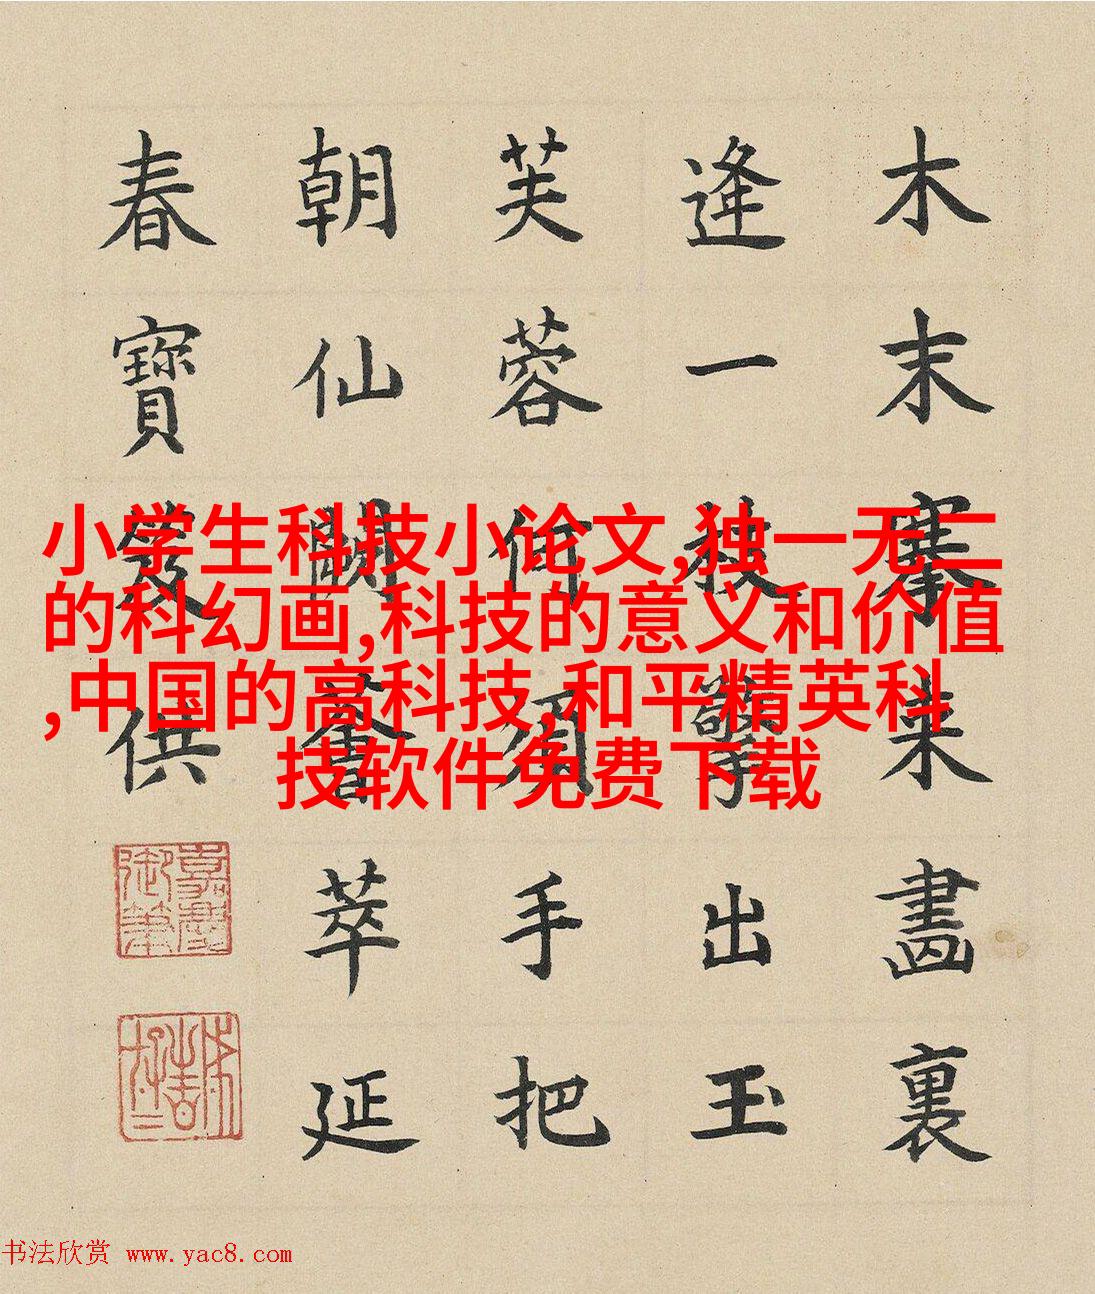 木末搴來畫裏
逢一枝擎出玉
芙蓉何須手把
朝仙闕薈萃延
春寶笈供
嘉慶御筆
小学生科技小论文,独一无二
的科幻画,科技的意义和价值
,中国的高科技,和平精英科
技软件免费下载
书法欣赏 www.yac8.com